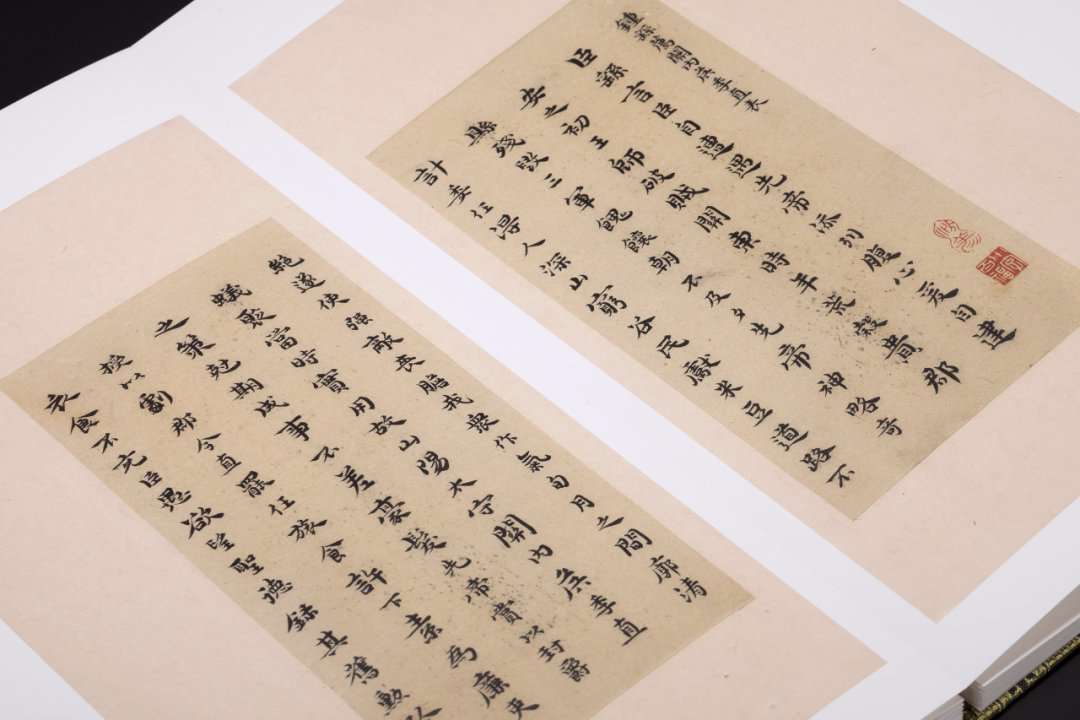 鍾繇薦關内侯季直表
臣繇言臣自遭遇先帝忝列腹心爰自建
安之初王師破賊關東時年荒穀貴郡
縣殘毀三軍餽饟朝不及夕先帝神略奇
計委任得人深山窮谷民獻米豆道路不
絶遂使强敵喪膽我衆作氣旬月之間廓清
蟻聚當時實用故山陽太守關内侯季直
之策尅期成事不差豪髮先帝賞以封爵
授以劇郡今直罷任旅食許下素爲廉吏
衣食不充臣愚欲望聖德録其舊勳